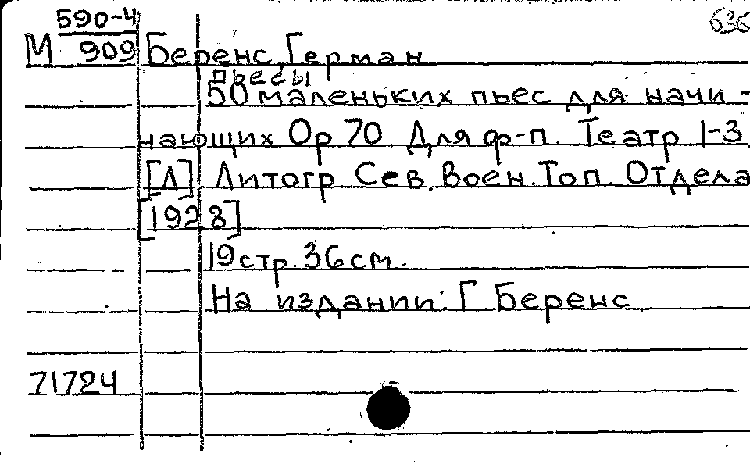 590-4
636
М 909 Беренс, Герман
Пьесы
50 маленьких пьес для начи-
нающих Ор 70 Для ф-п. Театр 1-3
[Л] Литогр Сев. Воен. Топ. Отдела
[1928]
19 стр. 36 см.
На издании: Г Беренс
71724